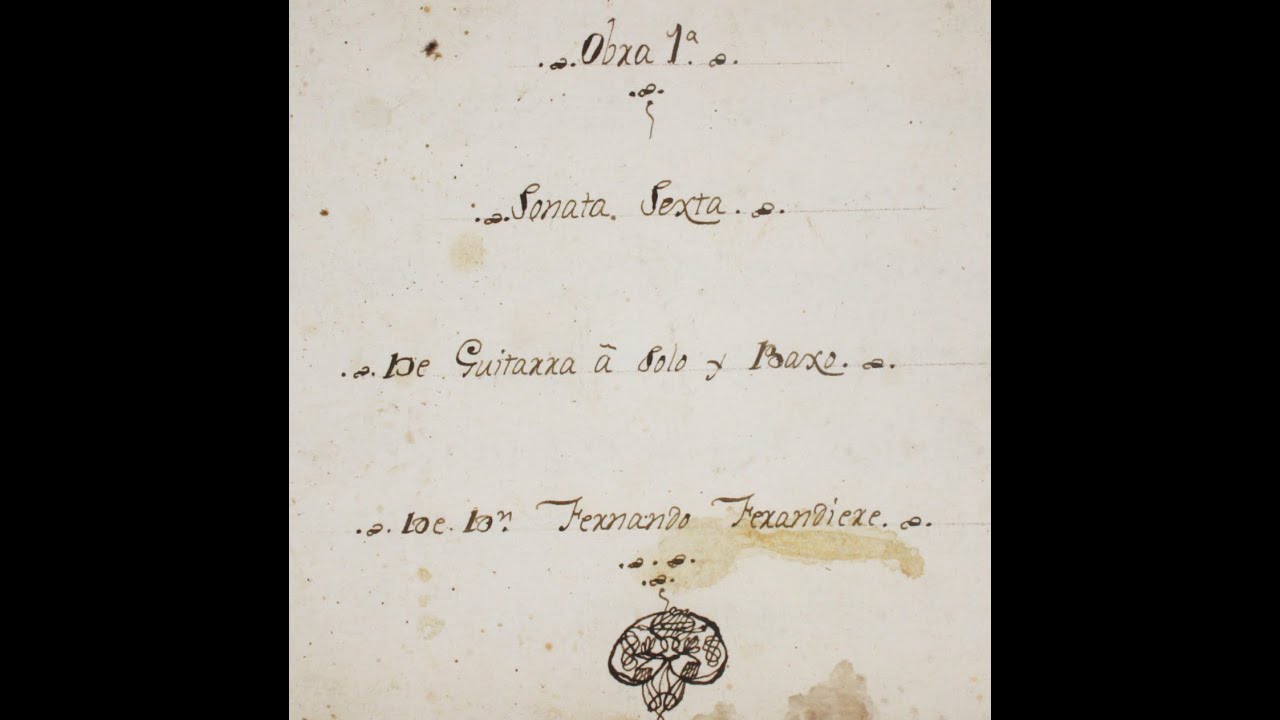 Obra 1ª.
Sonata. Sexta.
De Guitarra ã Solo y Baxo.
De. Dⁿ. Fernando Ferandiere.